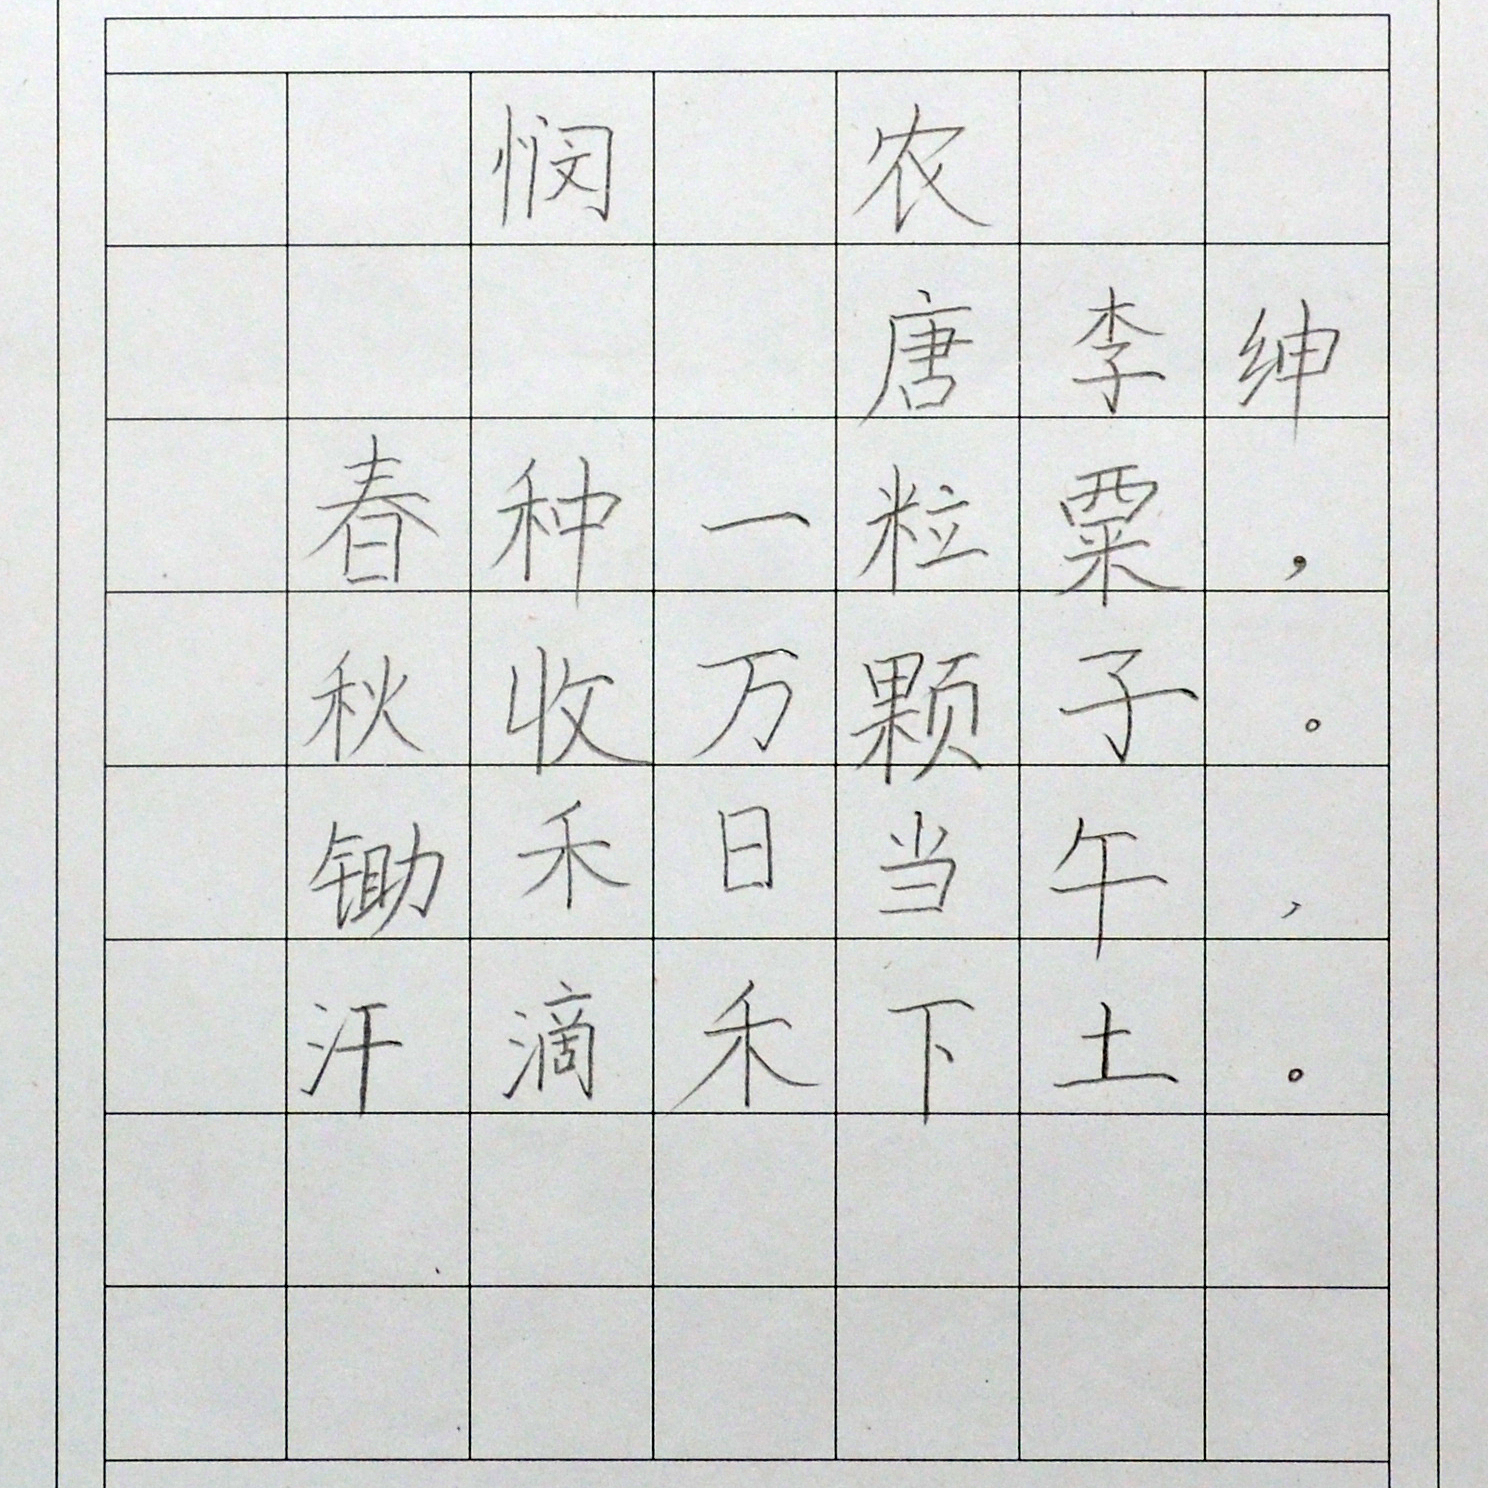 悯农
唐李绅
春种一粒粟，
秋收万颗子。
锄禾日当午，
汗滴禾下土。